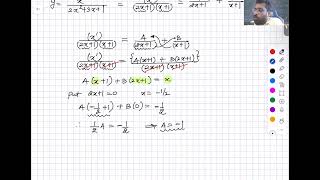 y = x / 2x²+3x+1
(x') / (2x+1)(x+1) = A / (2x+1) + B / (x+1)
(x') / (2x+1)(x+1) = {A(x+1) + B(2x+1)} / (2x+1)(x+1)
A(x+1) + B(2x+1) = x
put 2x+1=0 x = -1/2
A(-1/2+1) + B(0) = -1/2
∴ 1/2 A = -1/2 ⇒ A = -1